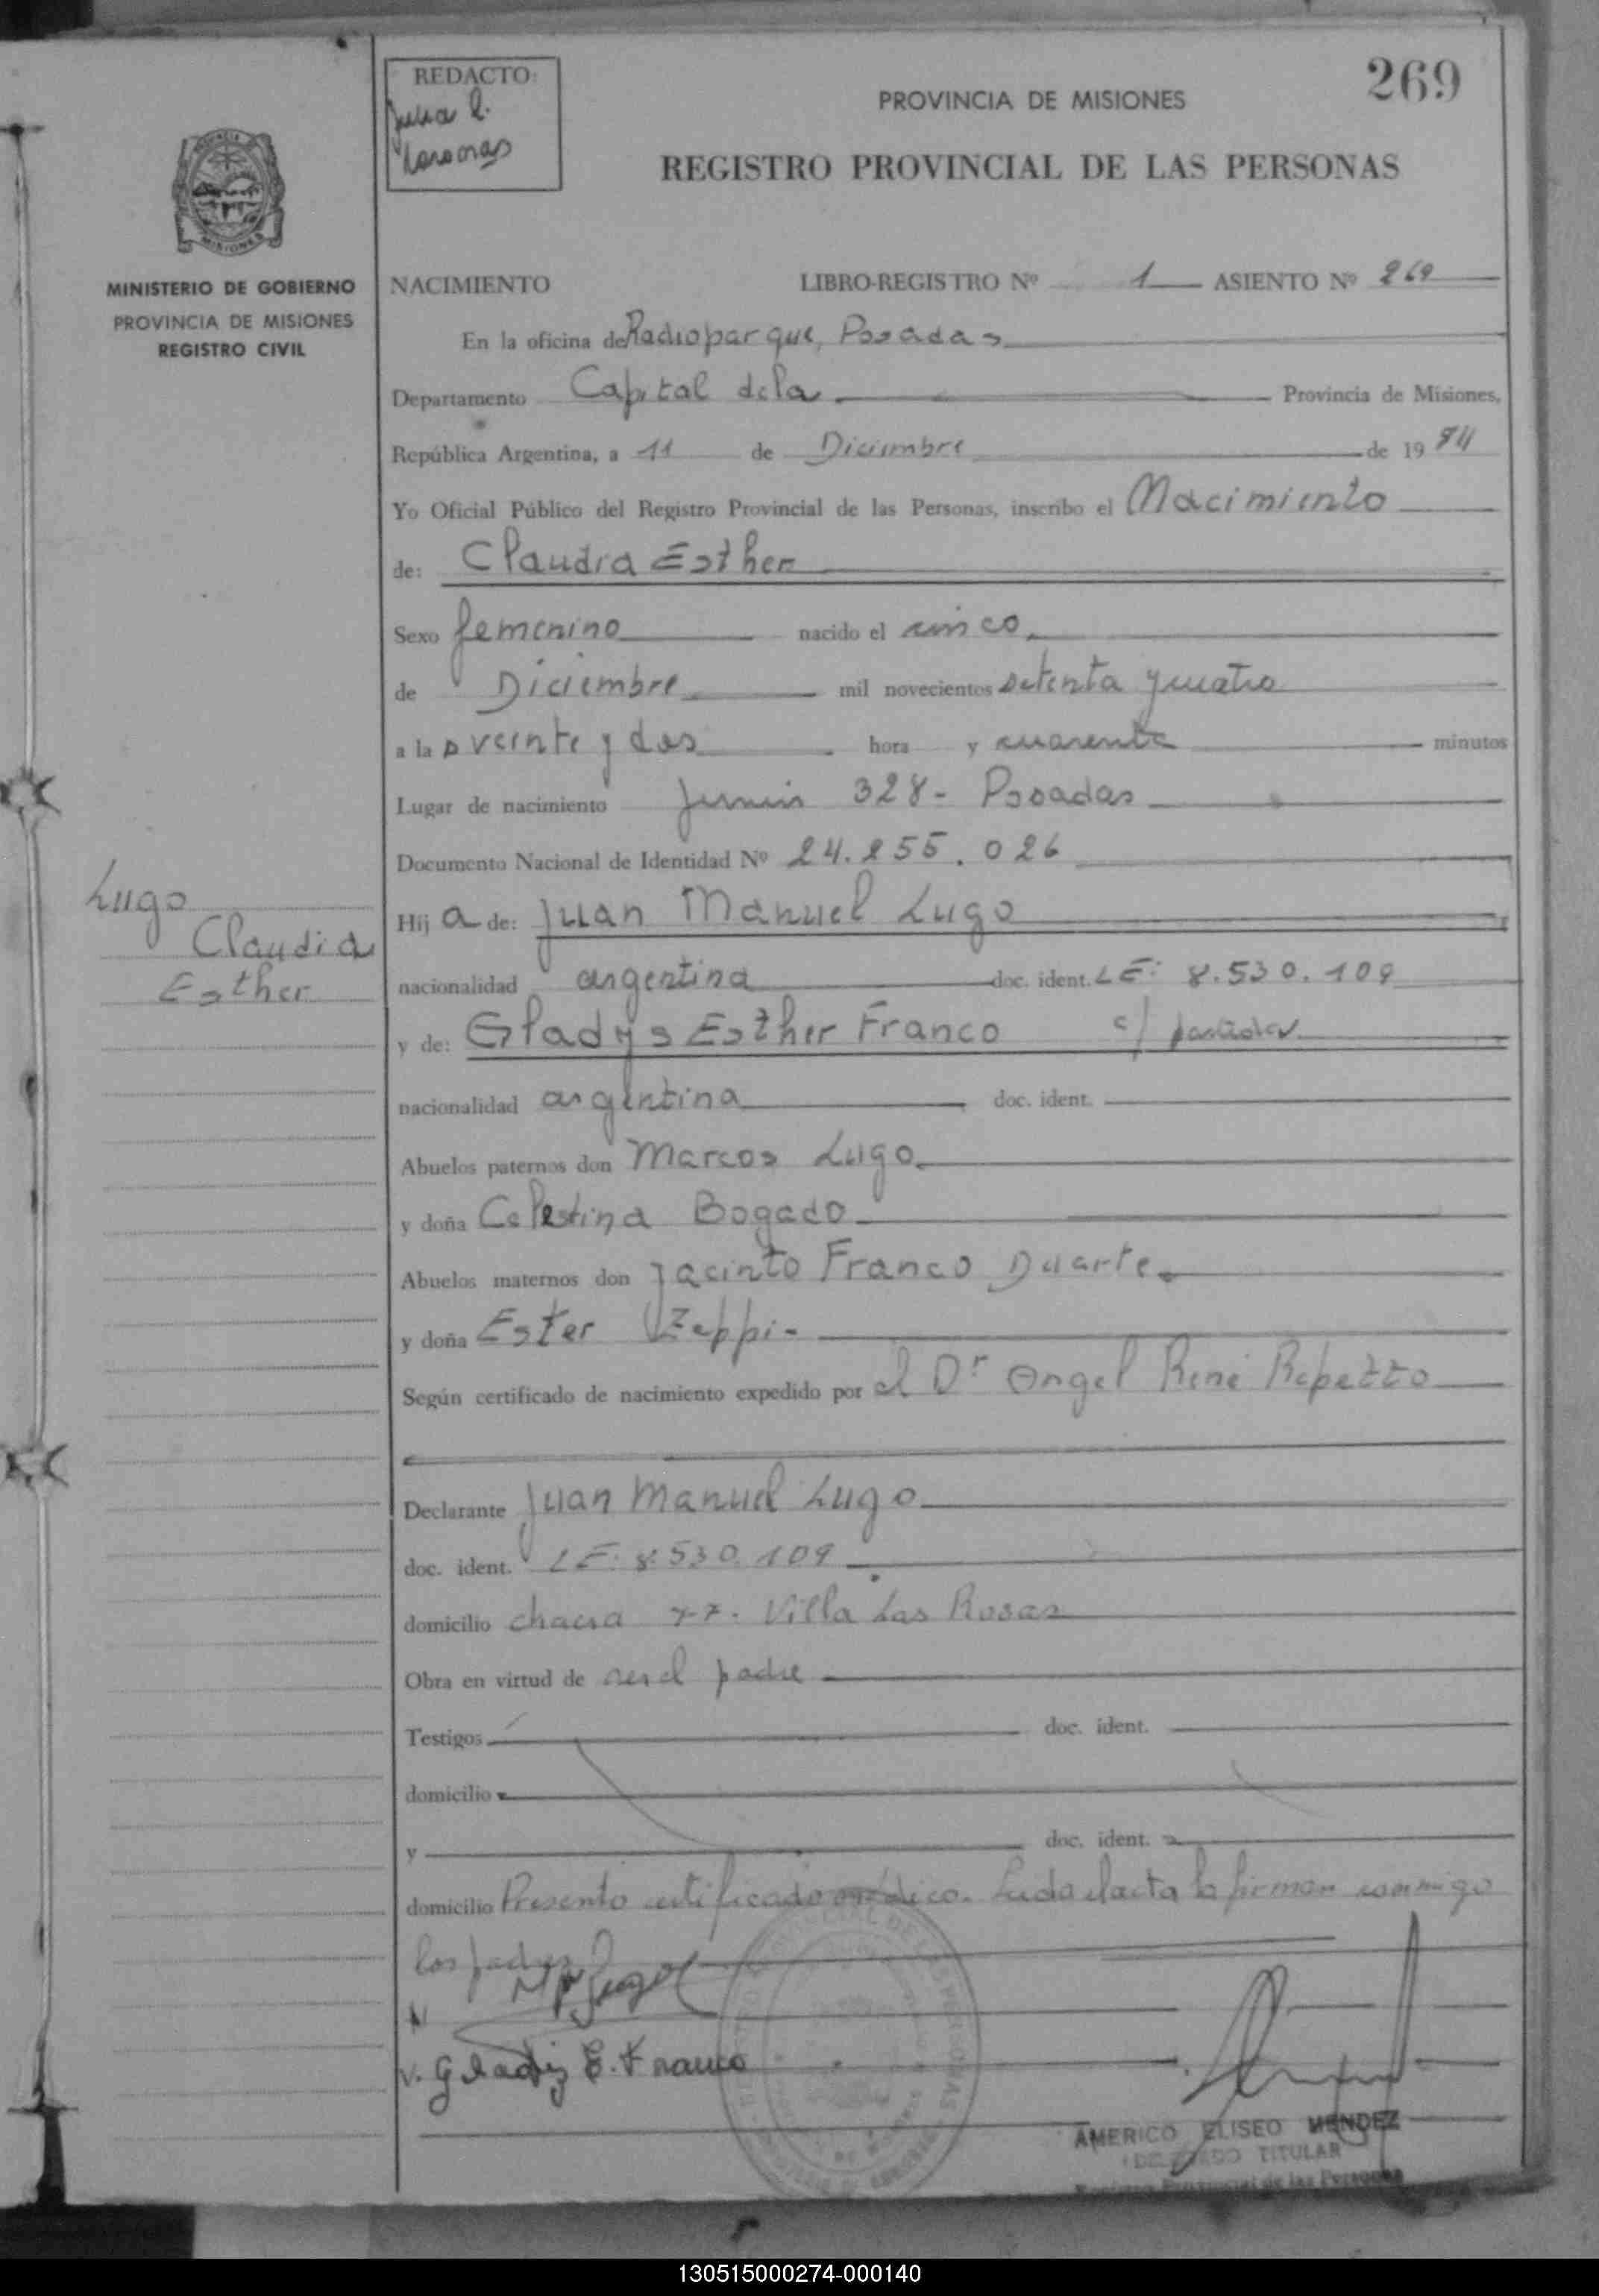 269
REDACTO:
Julia R.
PROVINCIA DE MISIONES
REGISTRO PROVINCIAL DE LAS PERSONAS
MISIONES
MINISTERIO DE GOBIERNO
PROVINCIA DE MISIONES
REGISTRO CIVIL
NACIMIENTO LIBRO-REGISTRO Nº 1 ASIENTO Nº 269
En la oficina de Radioparque, Posadas
Departamento Capital de la Provincia de Misiones,
República Argentina, a 11 de Diciembre de 1974
Yo Oficial Público del Registro Provincial de las Personas, inscribo el Nacimiento
de: Claudia Esther
Sexo femenino nacido el cinco
de Diciembre mil novecientos setenta y cuatro
a la s veinte y dos hora y cuarenta minutos
Lugar de nacimiento Junin 328- Posadas
Documento Nacional de Identidad Nº 24.255.026
Lugo
Claudia
Esther
Hij a de: Juan Manuel Lugo
nacionalidad argentina doc. ident. LE: 8.530.109
y de: Gladys Esther Franco c/ partida
nacionalidad argentina doc. ident.
Abuelos paternos don Marcos Lugo
y doña Celestina Bogado
Abuelos maternos don Jacinto Franco Duarte
y doña Ester Zeppi-
Según certificado de nacimiento expedido por el Dr Angel René Repetto
Declarante Juan Manuel Lugo
doc. ident. LE: 8.530.109
domicilio chacra 77. Villa Las Rosas
Obra en virtud de ser el padre
Testigos doc. ident.
domicilio
y doc. ident.
domicilio Presento certificado médico. Leida el acta la firman conmigo
los padres
Gladiz E. Franco
AMERICO ELISEO MENDEZ
DELEGADO TITULAR
Registro Provincial de las Personas
130515000274-000140